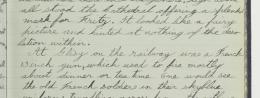 all stood the Cathedral offering a splendid
mark for Fritz. It looked like a fairy
picture and hinted at nothing of the deso-
lation within.
At Blizy on the railway was a French
15 inch gun, which used to fire mostly
about dinner or tea time. One would see
the old French soldiers in their skyblue